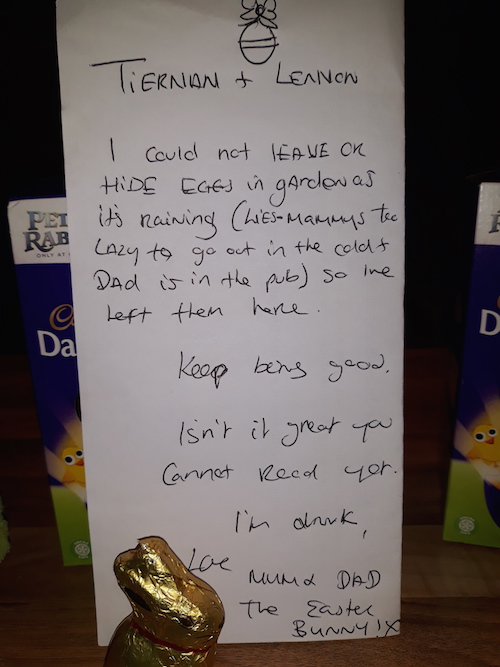 TIERNIAN + LENNON
I could not LEAVE OR
HIDE EGGS in gARDEN as
it's raining (LIES-MAMMYS too
LAZY to go out in the cold +
DAD is in the pub) so Ive
Left them here.
Keep being good.
Isn't it great you
Cannot Read yet.
I'm drunk,
Love
MUM & DAD
The Easter
BUNNY!X
PET
RAB
ONLY AT
C
Da
D